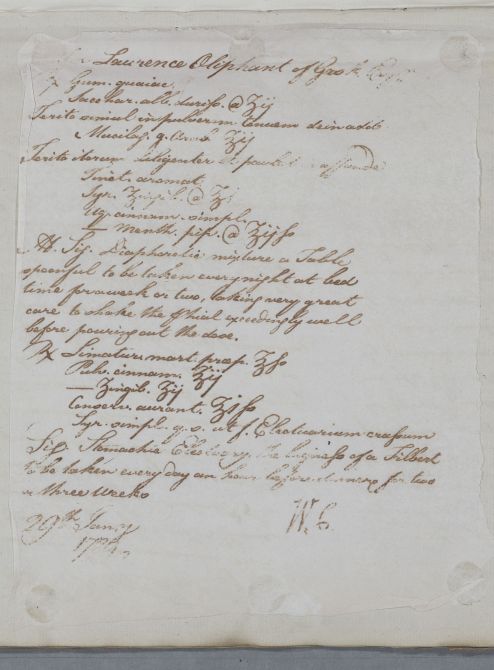 Lawrence Oliphant of
℞ Gum. guaiac.
Sacchar. alb. duriss. @ ʒij
Terito simul in pulverem tenuem dein adde
Mucilag. g. ʒij
Terito iterum diligenter &
Tinct. aromat.
Syr. Zingib. @ ℥j
Aq. cinnam. simpl.
— Menth. pip. @ ℥ijſs
M. Sig. Diaphoretic mixture a Table
spoonful to be taken every night at bed
time for a week or two, taking very great
care to shake the Phial exceedingly well
before pouring out the dose.
℞ Limatur. mart. præp. ℥ſs
Pulv. cinnam. ʒij
— Zingib. ʒij
Conserv. aurant. ℥jſs
Syr. simpl. q. s. ut f. Electuarium crassum
Sig. Stomachic Electuary, the bigness of a Filbert
to be taken every day an hour before dinner for two
or three weeks
29th Jany
W. C.